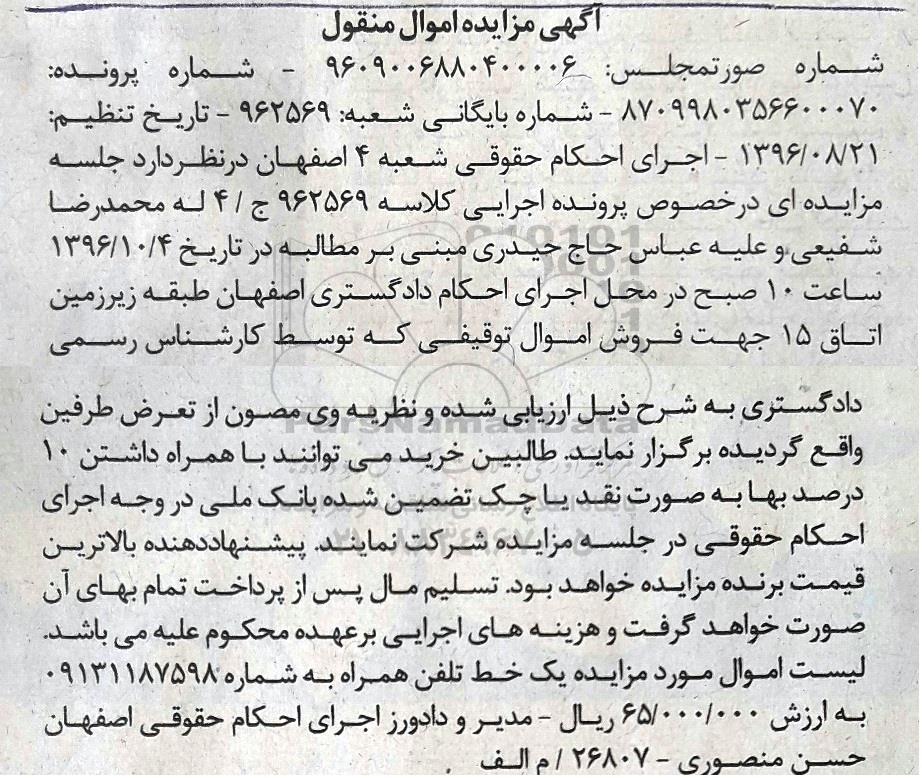 آگهی مزایده اموال منقول
شماره صورتمجلس: ۹۶۰۹۰۰۶۸۸۰۴۰۰۰۰۶ - شماره پرونده:
۸۷۰۹۹۸۰۳۵۶۶۰۰۰۷۰ - شماره بایگانی شعبه: ۹۶۲۵۶۹ - تاریخ تنظیم:
۱۳۹۶/۰۸/۲۱ - اجرای احکام حقوقی شعبه ۴ اصفهان درنظردارد جلسه
مزایده ای درخصوص پرونده اجرایی کلاسه ۹۶۲۵۶۹ ج / ۴ له محمدرضا
شفیعی و علیه عباس حاج حیدری مبنی بر مطالبه در تاریخ ۱۳۹۶/۱۰/۴
ساعت ۱۰ صبح در محل اجرای احکام دادگستری اصفهان طبقه زیرزمین
اتاق ۱۵ جهت فروش اموال توقیفی که توسط کارشناس رسمی
دادگستری به شرح ذیل ارزیابی شده و نظریه وی مصون از تعرض طرفین
واقع گردیده برگزار نماید. طالبین خرید می توانند با همراه داشتن ۱۰
درصد بها به صورت نقد یا چک تضمین شده بانک ملی در وجه اجرای
احکام حقوقی در جلسه مزایده شرکت نمایند. پیشنهاددهنده بالاترین
قیمت برنده مزایده خواهد بود. تسلیم مال پس از پرداخت تمام بهای آن
صورت خواهد گرفت و هزینه های اجرایی برعهده محکوم علیه می باشد.
لیست اموال مورد مزایده یک خط تلفن همراه به شماره ۰۹۱۳۱۱۸۷۵۹۸
به ارزش ۶۵/۰۰۰/۰۰۰ ریال - مدیر و دادورز اجرای احکام حقوقی اصفهان
حسن منصوری - ۲۶۸۰۷ / م الف